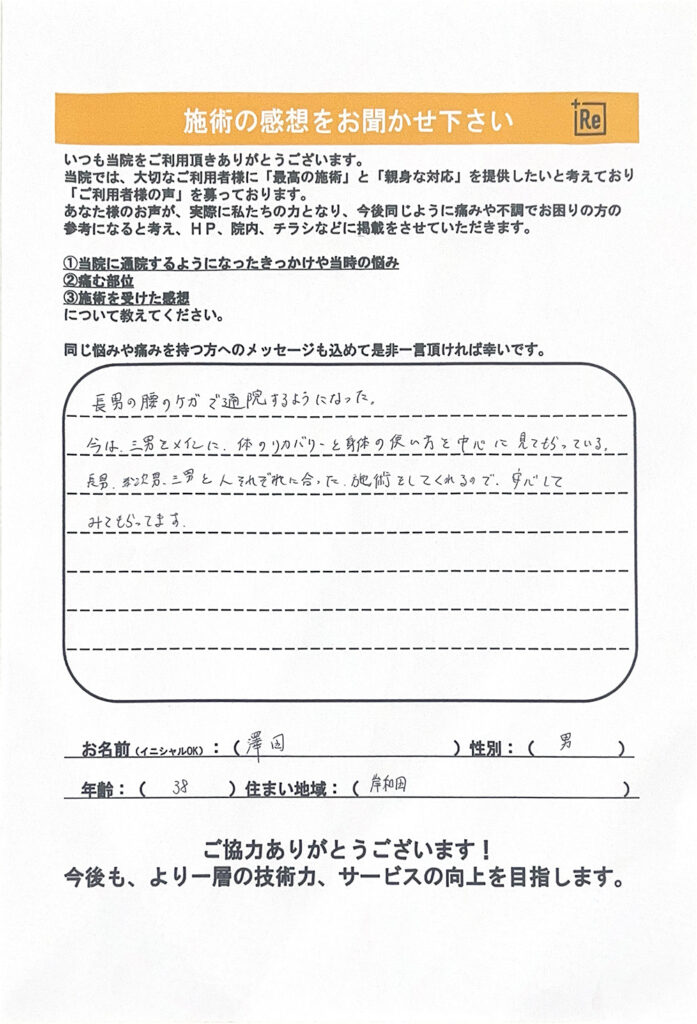 施術の感想をお聞かせ下さい
+Re
いつも当院をご利用頂きありがとうございます。
当院では、大切なご利用者様に「最高の施術」と「親身な対応」を提供したいと考えており
「ご利用者様の声」を募っております。
あなた様のお声が、実際に私たちの力となり、今後同じように痛みや不調でお困りの方の
参考になると考え、ＨＰ、院内、チラシなどに掲載をさせていただきます。
①当院に通院するようになったきっかけや当時の悩み
②痛む部位
③施術を受けた感想
について教えてください。
同じ悩みや痛みを持つ方へのメッセージも込めて是非一言頂ければ幸いです。
長男の腰のケガで通院するようになった。
今は、三男をメインに、体のリカバリーと身体の使い方を中心に見てもらっている。
長男、次男、三男と人それぞれに合った、施術をしてくれるので、安心して
みてもらってます。
お名前（イニシャルOK）：（澤田）性別：（男）
年齢：（38）住まい地域：（岸和田）
ご協力ありがとうございます！
今後も、より一層の技術力、サービスの向上を目指します。